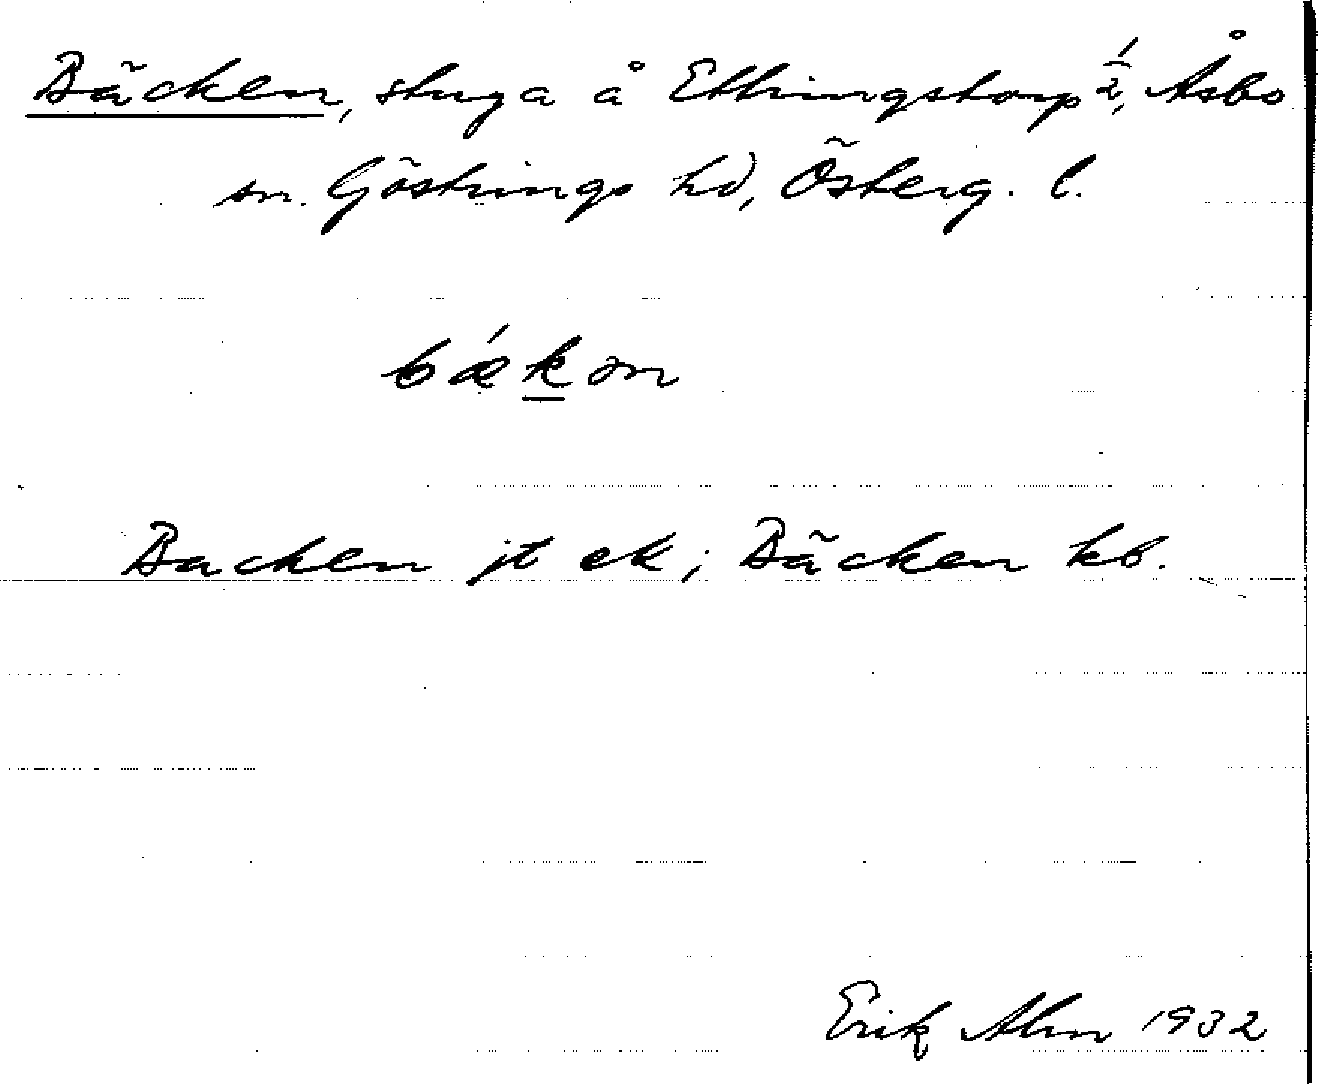 Bäcken, stuga å Ettringstorp 1/2, Åsbo
sn. Göstrings hd, Österg. l.
bǽkən
Backen jt ek; Bäcken kb.
Erik Alm 1932